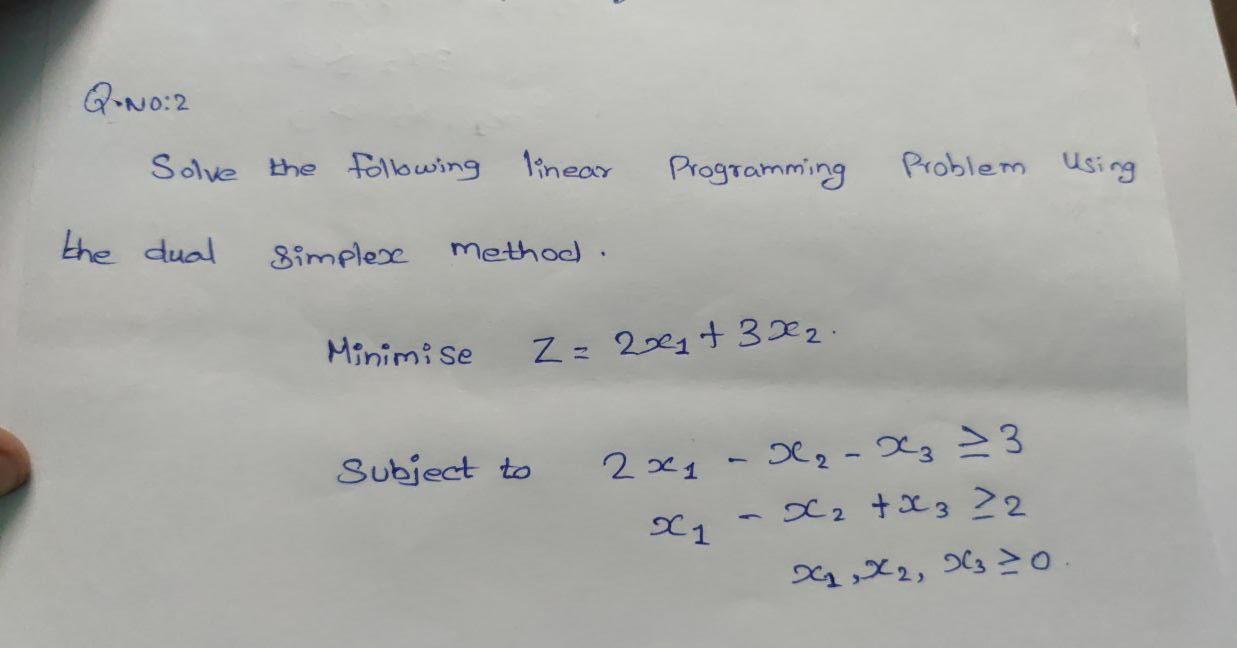 Q.NO:2
Solve the following linear Programming Problem Using
the dual Simplex method.
Minimise Z = 2x₁ + 3x₂.
Subject to 2x₁ - x₂ - x₃ ≥ 3
x₁ - x₂ + x₃ ≥ 2
x₁, x₂, x₃ ≥ 0.